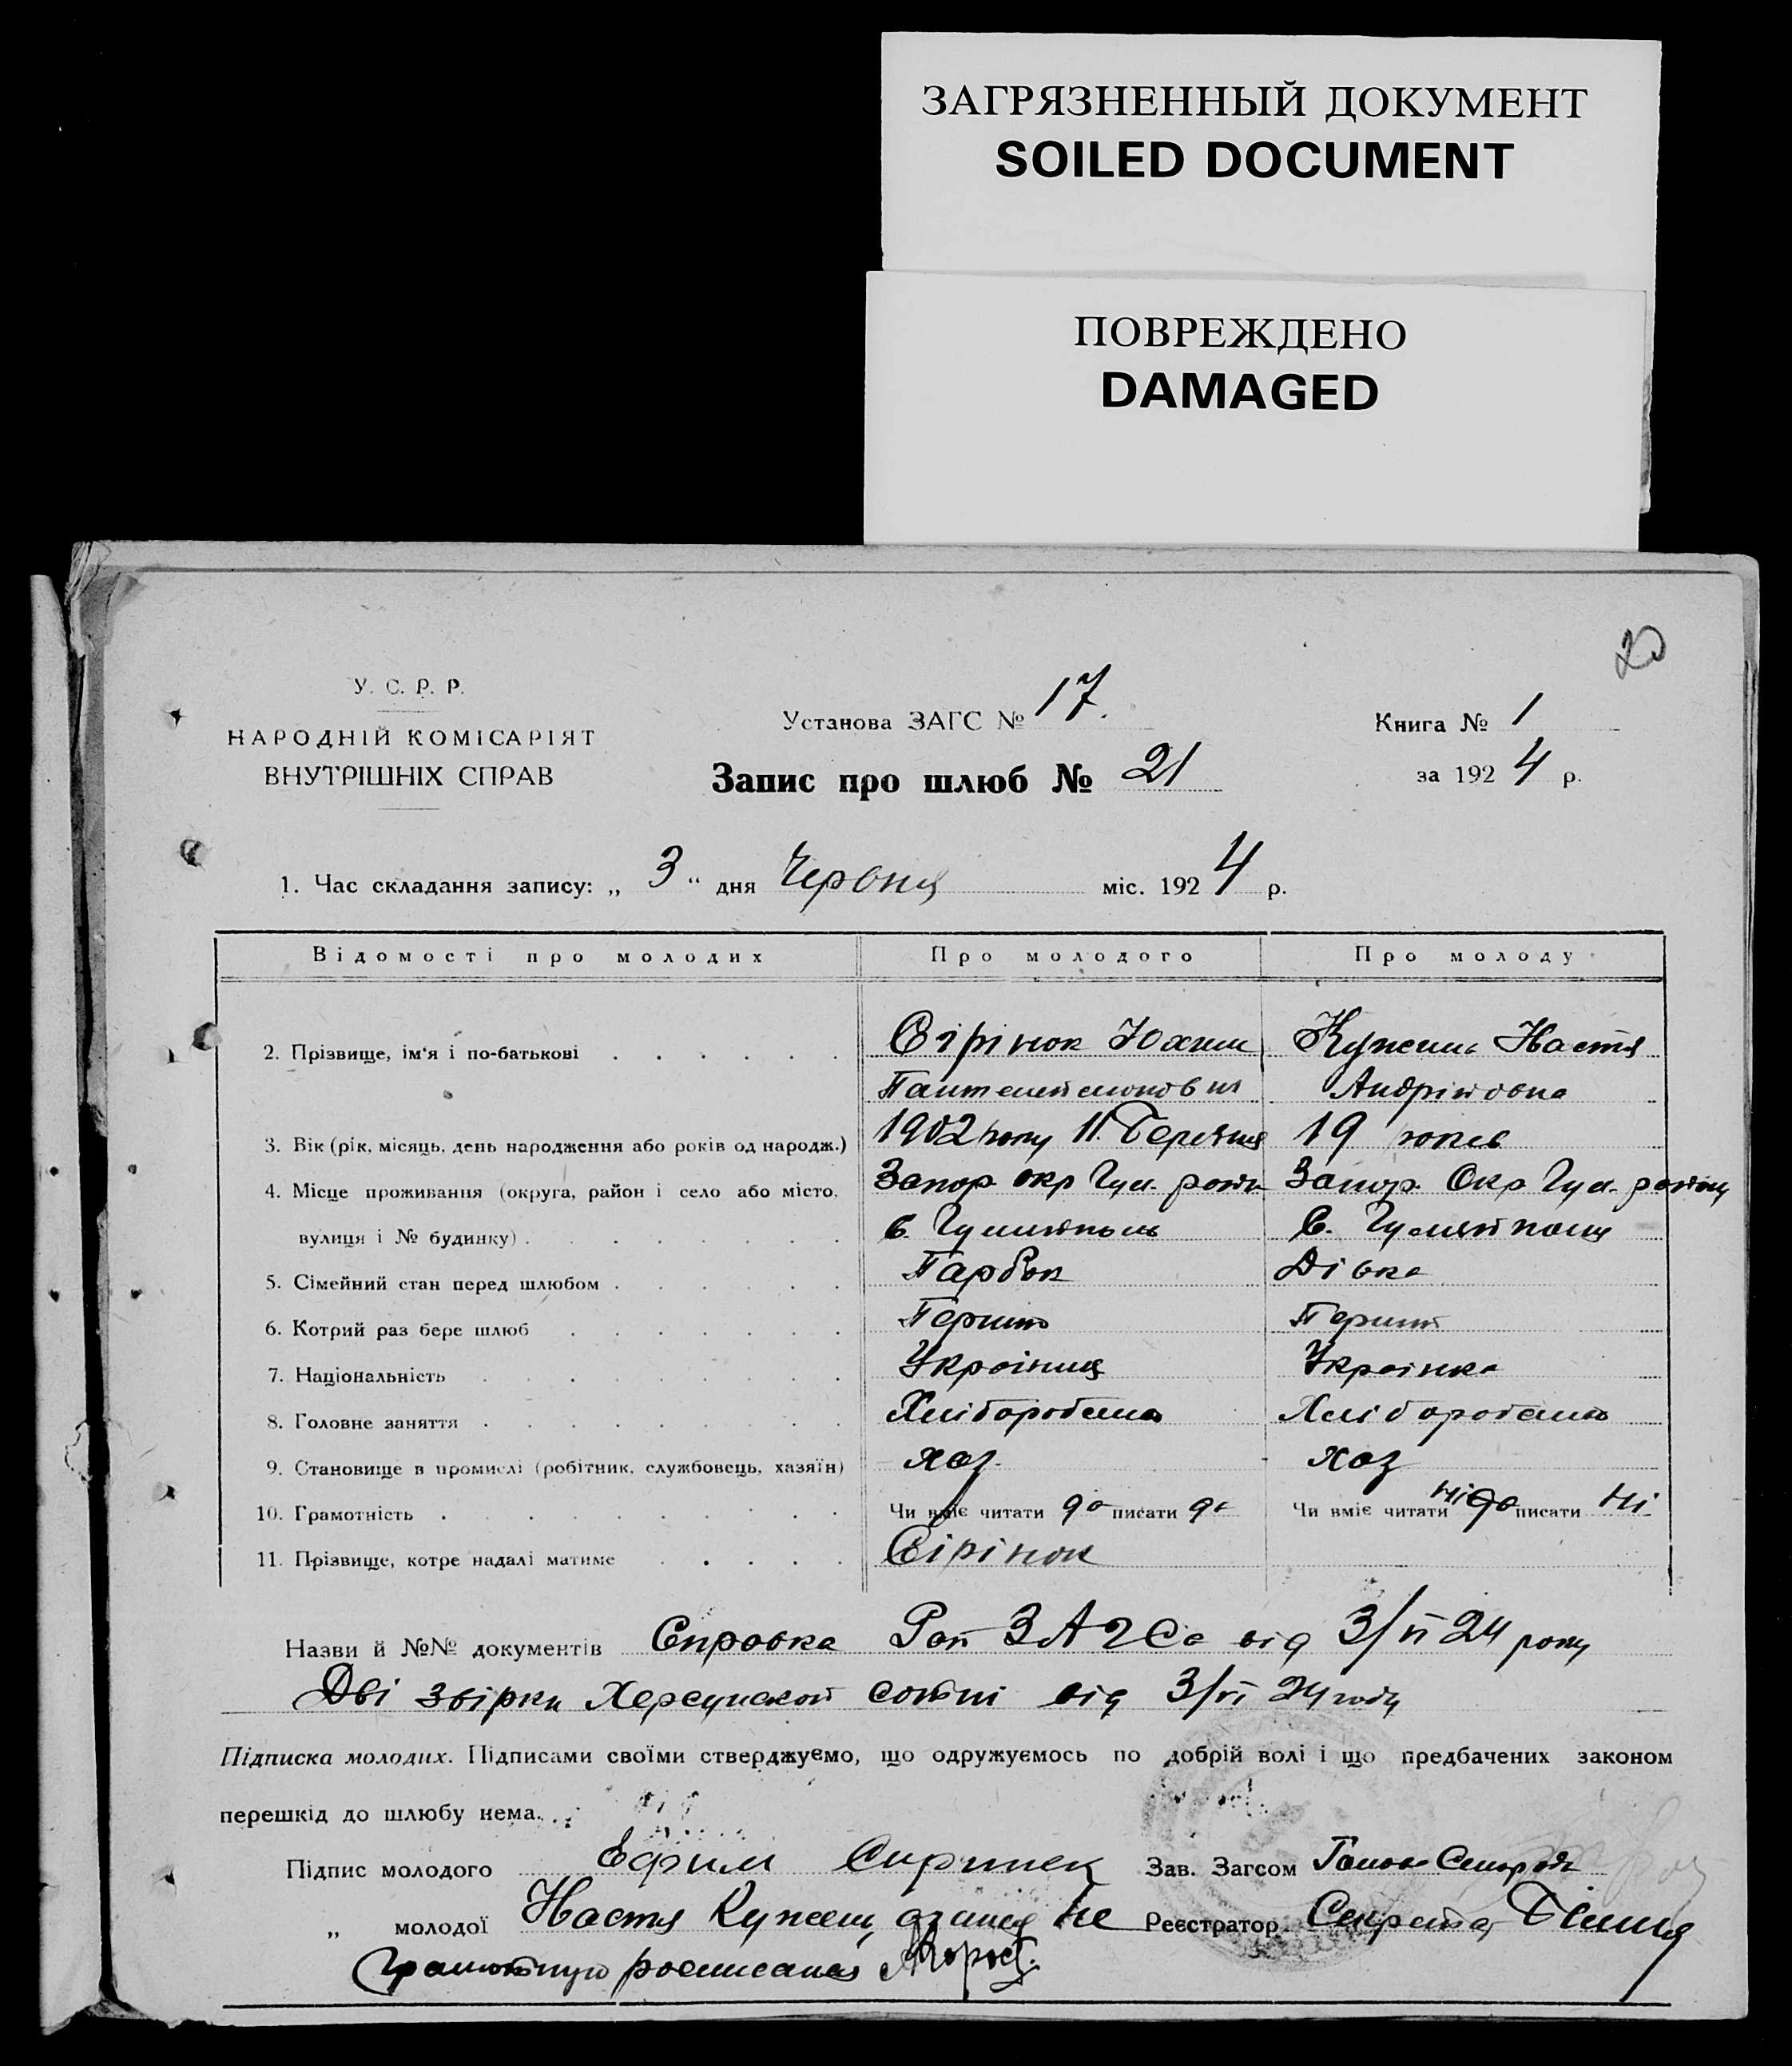 ЗАГРЯЗНЕННЫЙ ДОКУМЕНТ
SOILED DOCUMENT
ПОВРЕЖДЕНО
DAMAGED
20
У. С. Р. Р.
НАРОДНІЙ КОМІСАРІЯТ
ВНУТРІШНІХ СПРАВ
Установа ЗАГС № 17.
Книга № 1
Запис про шлюб № 21
за 1924 р.
1. Час складання запису: „3“ дня Червня міс. 1924 р.
Відомості про молодих Про молодого Про молоду
2. Прізвище, ім'я і по-батькові Сірінок Юхим Кужель Настя
Пантелеймонов Андріївна
3. Вік (рік, місяць, день народження або років од народж.) 1902 року 11. Березня 19 років
4. Місце проживання (округа, район і село або місто, Запор. окр Гул. район Запор. Окр Гул. району
вулиця і № будинку) с. Гуляйполь с. Гуляйполя
5. Сімейний стан перед шлюбом Парубок Дівка
6. Котрий раз бере шлюб Перший Перший
7. Національність Українец Українка
8. Головне заняття Хліборобство Хліборобство
9. Становище в промислі (робітник, службовець, хазяїн) хаз. хаз
10. Грамотність Чи вміє читати да писати да Чи вміє читати ні писати ні
11. Прізвище, котре надалі матиме Сірінок
Назви й №№ документів Справка Рай ЗАГСа від 3/VI 24 року
Дві звірки Херсунской сотні від 3/VI 24 году
Підписка молодих. Підписами своїми стверджуємо, що одружуємось по добрій волі і що предбачених законом
перешкід до шлюбу нема.
Підпис молодого Ефим Сиринек Зав. Загсом
„ молодої Настя Кужель, а за нея не Реєстратор Секретар
грамотную росписался